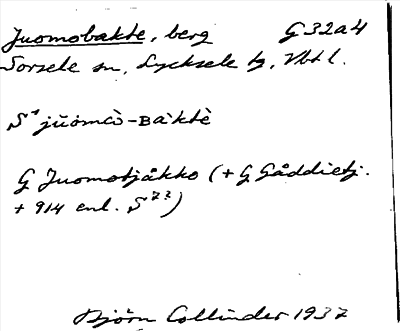 Juomobakte, berg G 32a4
Sorsele sn, Lycksele tg, Vbtl.
S¹ jŭŏmcò-ʙàktè
G Juomotjåkko (+ G Gåddietj.
+ 914 enl. S⁷²)
Björn Collinder 1937